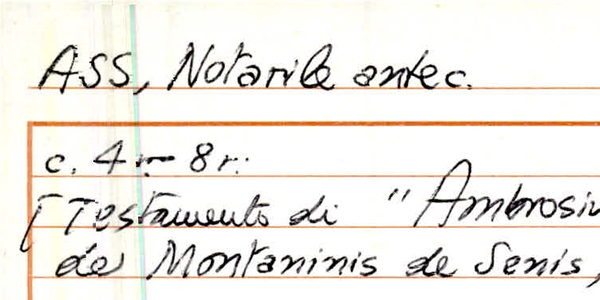 ASS, Notarile antec.
c. 4r - 8r.
[Testamento di "Ambrosiu
de Montaninis de Senis,